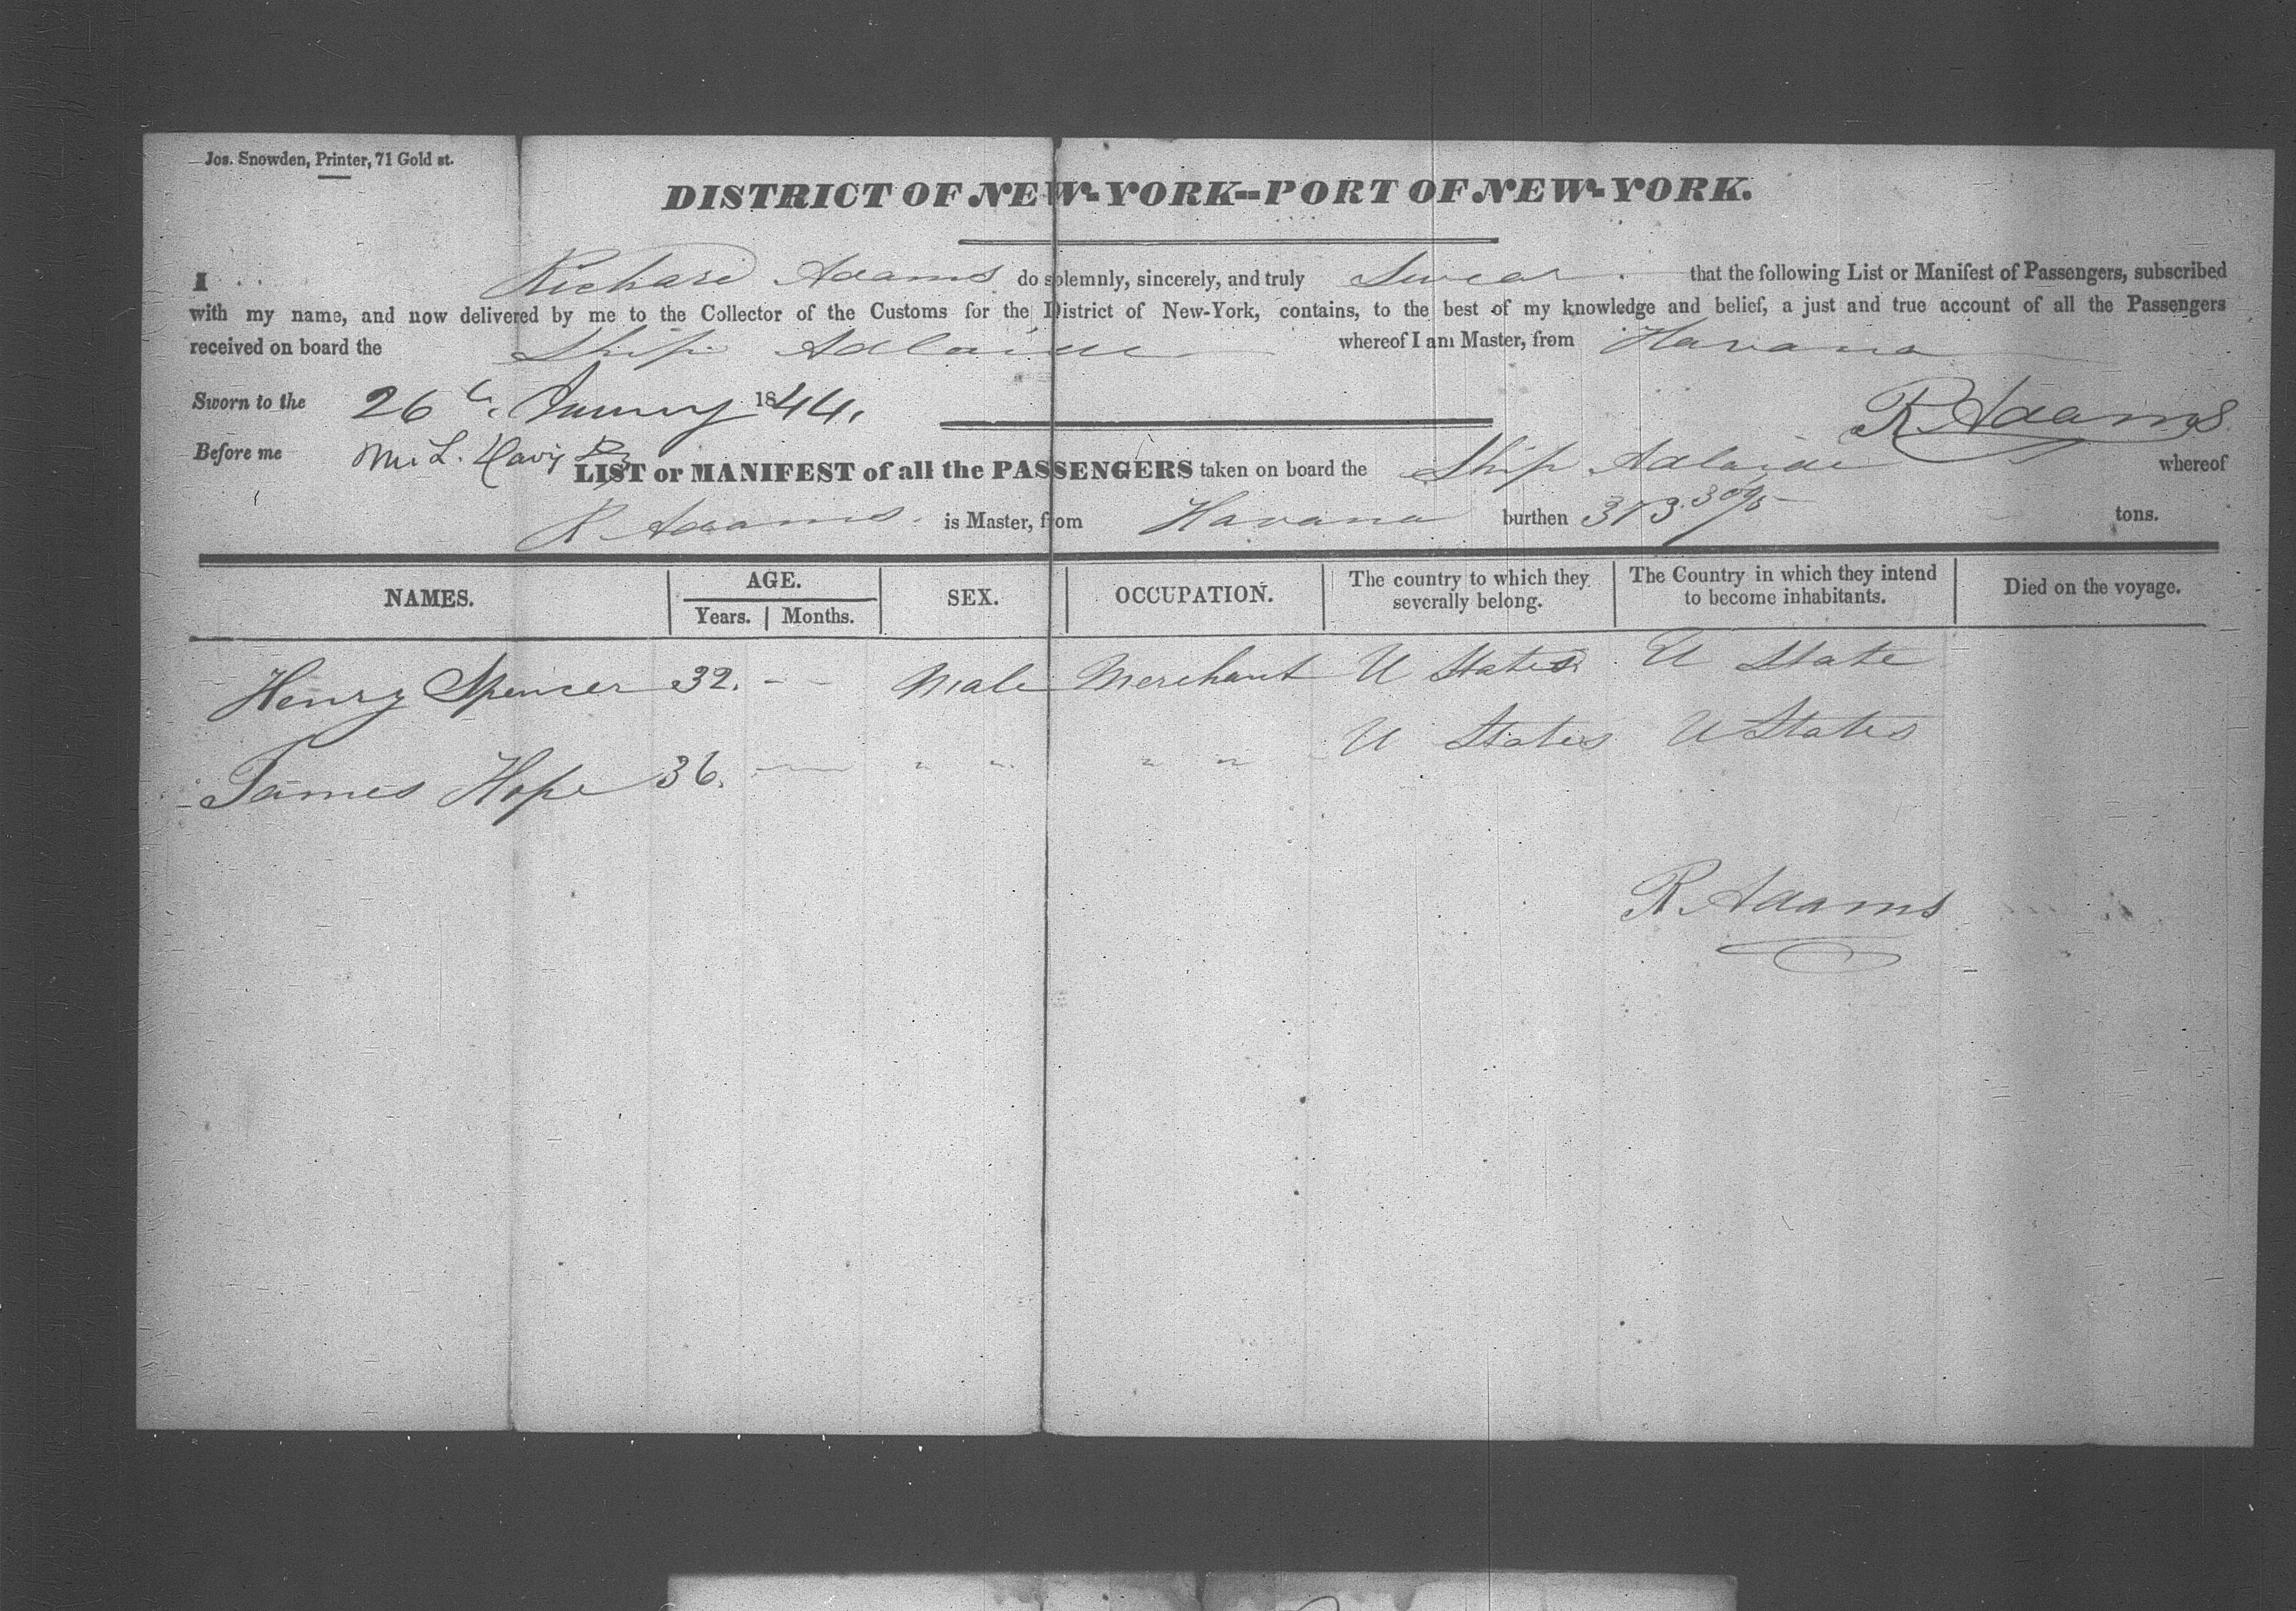 Jos. Snowden, Printer, 71 Gold st.
DISTRICT OF NEW-YORK--PORT OF NEW-YORK.
I Richard Adams do solemnly, sincerely, and truly Swear that the following List or Manifest of Passengers, subscribed
with my name, and now delivered by me to the Collector of the Customs for the District of New-York, contains, to the best of my knowledge and belief, a just and true account of all the Passengers
received on board the Ship Adlaide whereof I am Master, from Havana
Sworn to the 26th January 1844.
R Adams
Before me M. L. Davis
LIST or MANIFEST of all the PASSENGERS taken on board the Ship Adlaide whereof
R Adams. is Master, from Havana burthen 313 30/95 tons.
NAMES. AGE. SEX. OCCUPATION. The country to which they severally belong. The Country in which they intend to become inhabitants. Died on the voyage.
Years. Months.
Henry Spencer 32. - - Male Merchant U States U State
James Hope 36. — " " " " U States U States
R. Adams